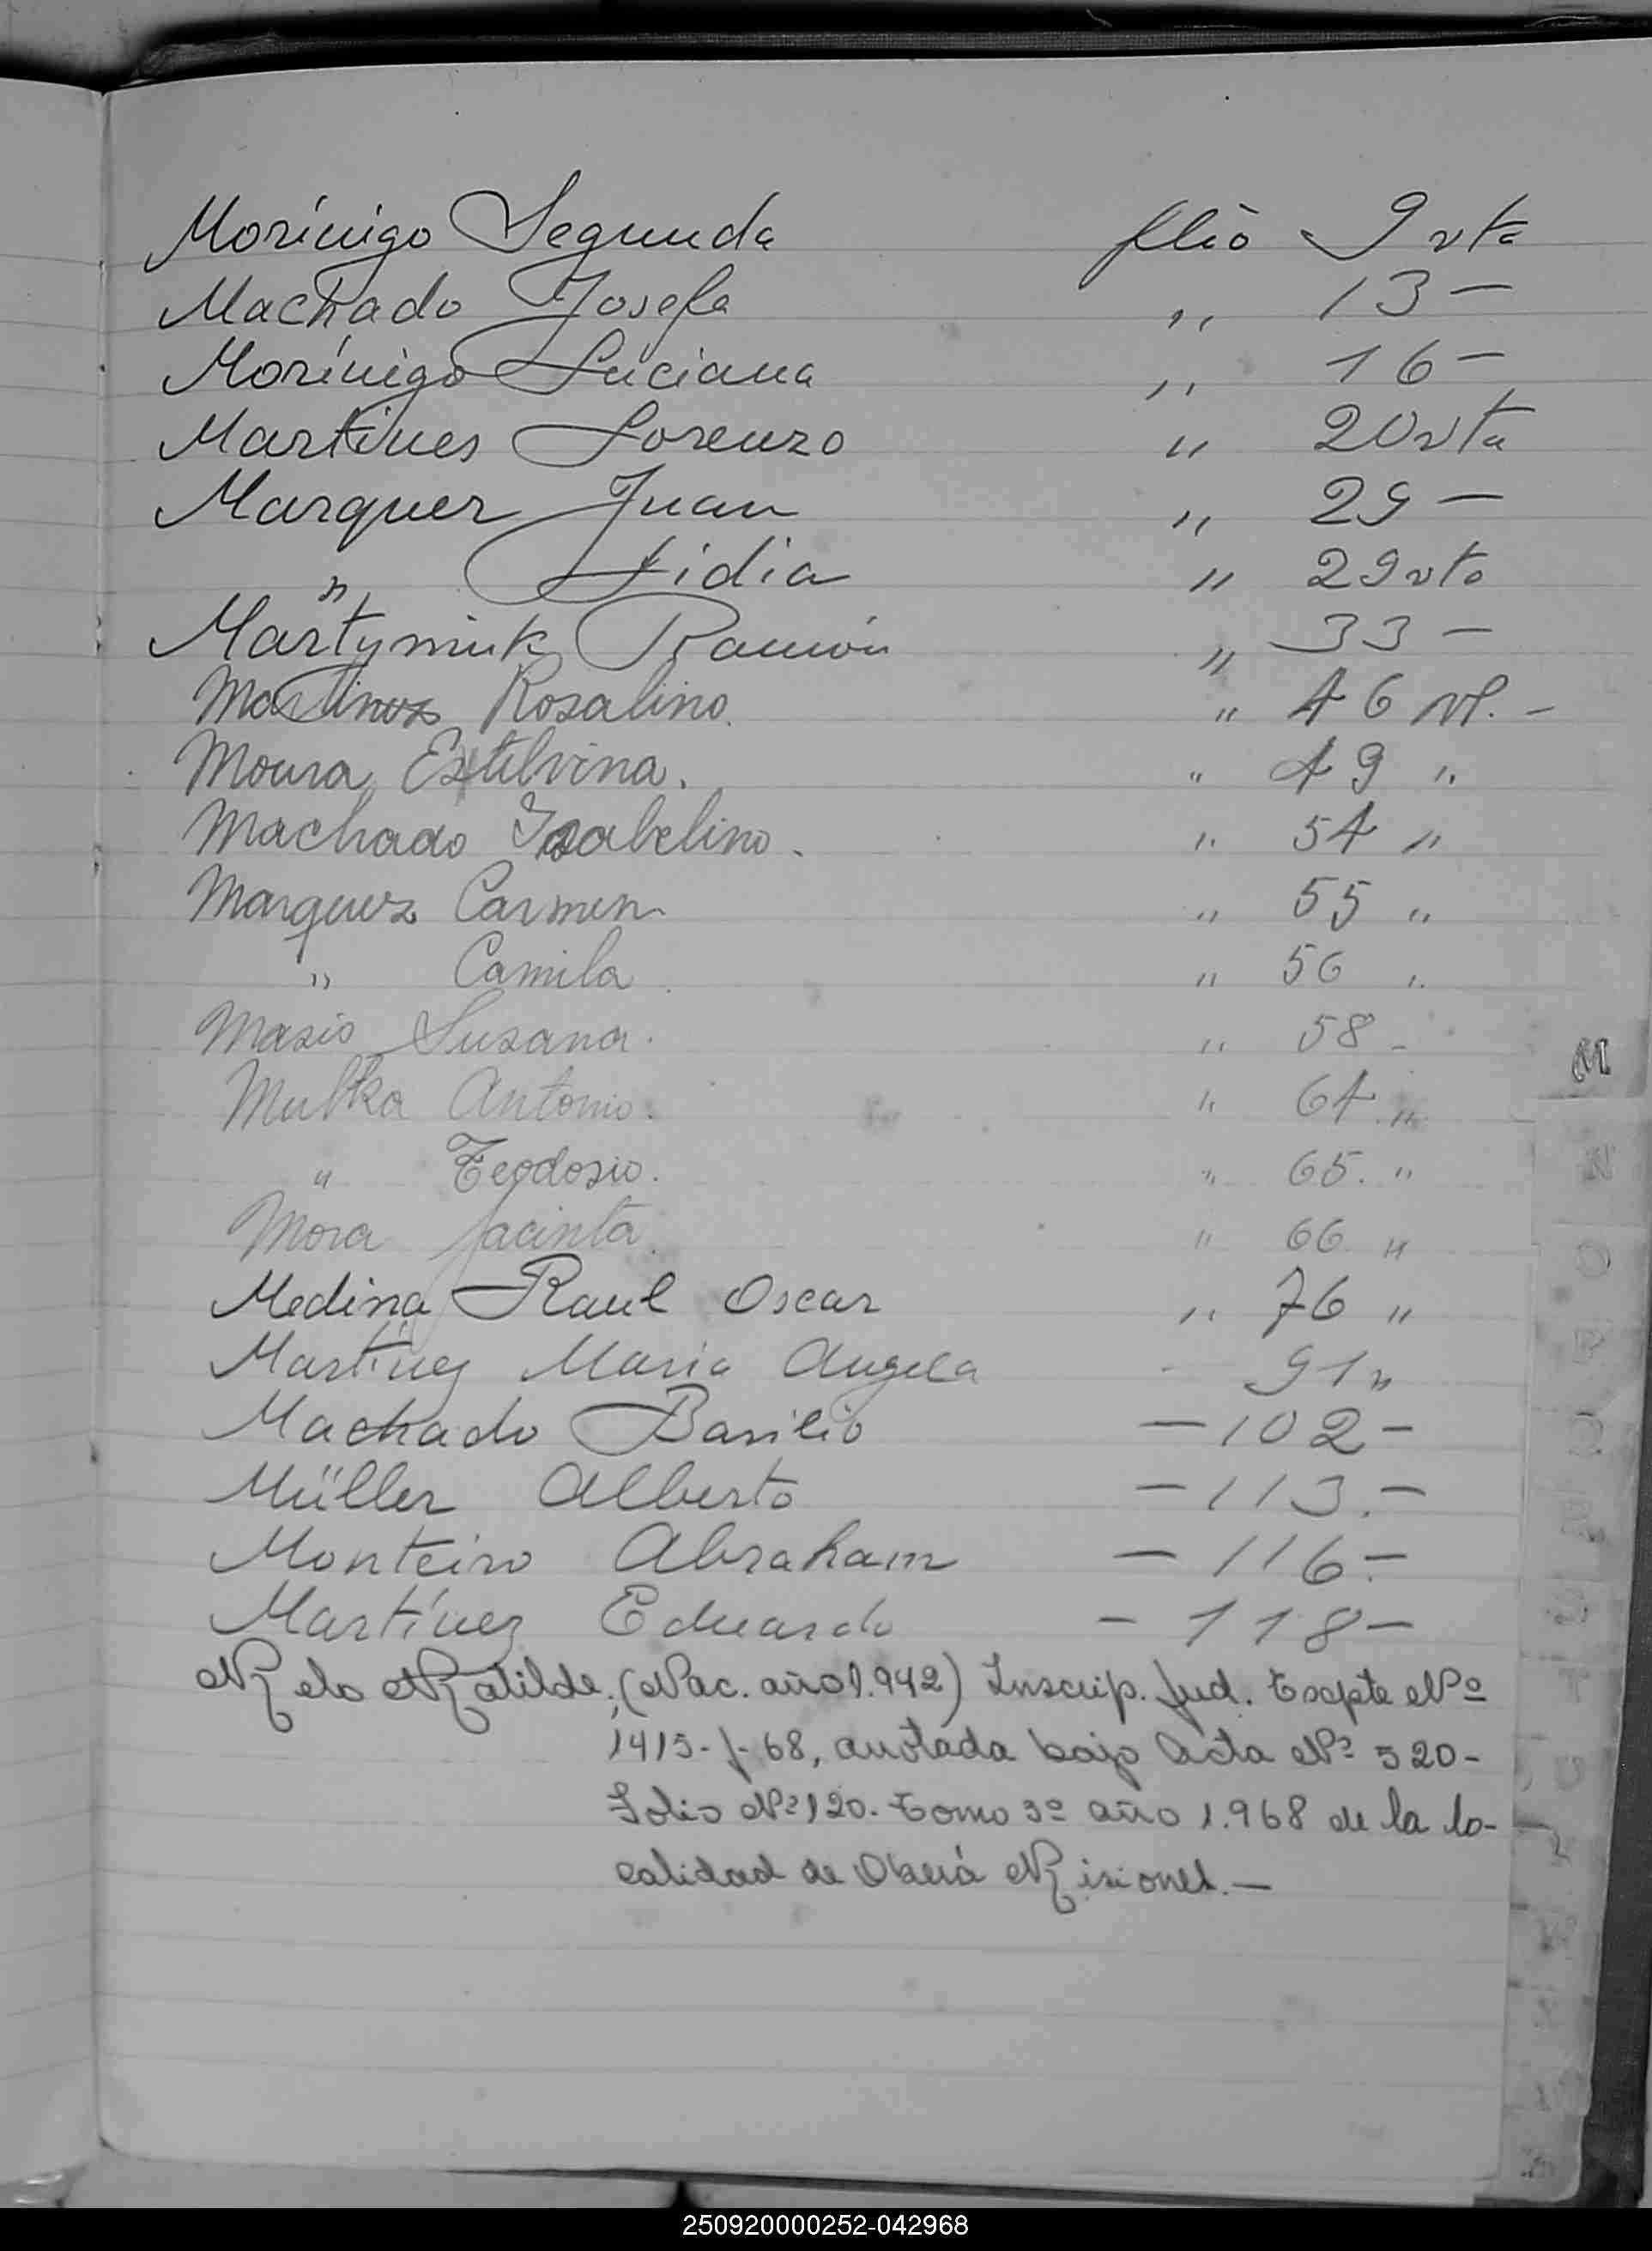 Morínigo Segunda flio 9 vta
Machado Josefa ,, 13 —
Morínigo Luciana ,, 16 —
Martines Lorenzo ,, 20 vta
Marquez Juan ,, 29 —
,, Lidia ,, 29 vto
Martyniuk Ramón ,, 33 —
Martinez Rosalino. ,, 46 vt. —
Moura Estelvina. ,, 49 ,,
Machado Isabelino. ,, 54 ,,
Marquez Carmen ,, 55 ,,
,, Camila ,, 56 ,,
Masio Susana. ,, 58 -
Mutka Antonio. ,, 64 ,,
,, Teodosio. ,, 65. ,,
Mora Jacinta. ,, 66 ,,
Medina Raul Oscar ,, 76 ,,
Martínez Maria Angela - 91 ,,
Machado Basilio — 102 —
Müller Alberto — 113. —
Monteiro Abraham — 116 —
Martínez Eduardo — 118 —
Melo Matilde; (Nac. año 1.942) Inscrip. Jud. Expte Nº
1415-f-68, anotada bajo Acta Nº 520-
Folio Nº 120. Tomo 3º año 1.968 de la lo-
calidad de Oberá Misiones. —
M
N
250920000252-042968